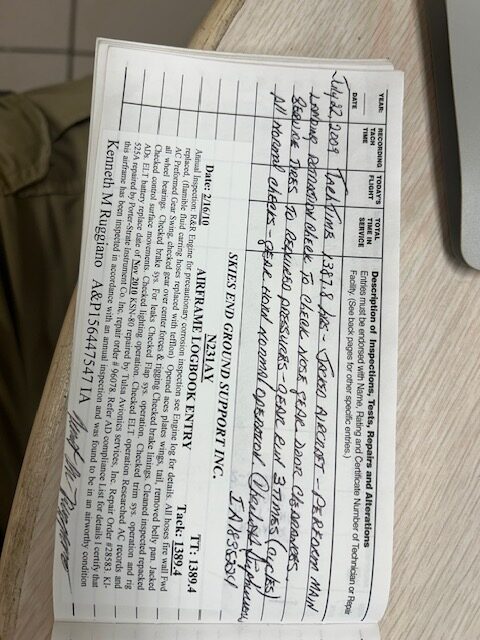 YEAR:
DATE
RECORDING TACH TIME
TODAY'S FLIGHT
TOTAL TIME IN SERVICE
Description of Inspections, Tests, Repairs and Alterations
Entries must be endorsed with Name, Rating and Certificate Number of Technician or Repair
Facility. (See back pages for other specific entries.)
July 22, 2009 TachTime 1387.8 HRS - JACKED AIRCRAFT - PERFORM MAIN
LANDING RETRACTION CHECK TO CHECK NOSE GEAR DOOR CLEARANCES
SERVICE TIRES TO REQUIRED PRESSURES - GEAR RUN 3 TIMES (CYCLES)
All NORMAL CHECKS - GEAR HORN NORMAL OPERATION
SKIES END GROUND SUPPORT INC.
N231AY
Date: 2/16/10 AIRFRAME LOGBOOK ENTRY TT: 1389.4
Tach: 1389.4
Annual Inspection: R&R Engine for precautionary corrosion inspection see Engine log for details. All hoses fire wall Fwd
replaced, (flamible fluid carring hoses replaced with teflon) Opened aces plates wings, tail, removed belly pan. Jacked
AC Preformed Gear Swing, checked gear over center forces & rigging Checked brake linings. Cleaned inspected repacked
all wheel bearings. Checked brake sys. For leaks Checked Flap sys. operation. Checked trim sys. operation and rig
Checked control surface movements. Checked lighting operation. Checked ELT operation Researched AC records and
ADs. ELT battery replace date of Nov 2010 KSN-80 repaired by Tulsa Avionics services, Inc. Repair Order #28583. KI-
525A repaired by Porter-Strate Instrument Co. Inc. repair order # 96078. Refer AD compliance List for details I certify that
this airframe has been inspected in accordance with an annual inspection and was found to be in an airworthy condition
Kenneth M Ruggiano A&P156447547 IA